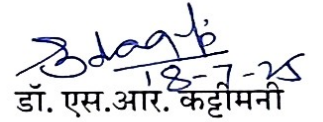 18-7-25
डॉ. एस.आर. कट्टीमनी